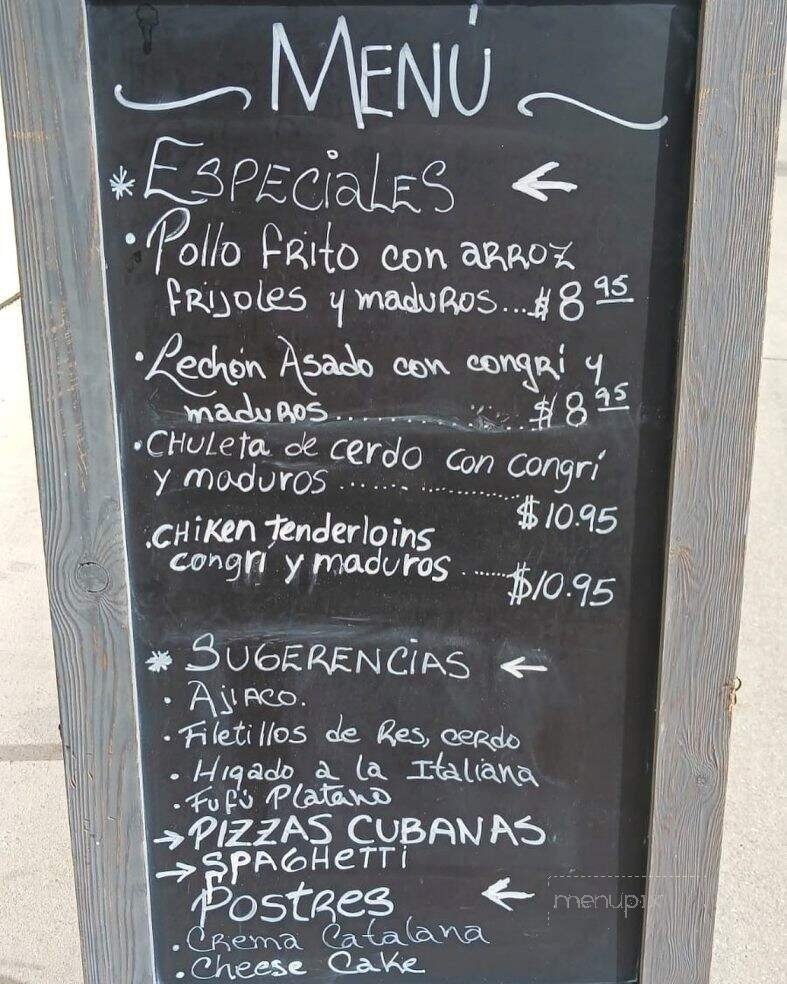 MENÚ
* ESPECiALES ←
• Pollo fRito con ARROZ
fRIJOLES y maduROS...$8 95
• Lechón Asado con congRí y
maduROS..............$8 95
• CHULeta de cerdo con congrí
y maduros ..................
$10.95
. CHiKen tenderloins
congrí y maduros ........
$10.95
* SUGERENCiAS ←
• AjiACO.
• Filetillos de Res, cerdo
• Higado a la Italiana
• Fufú Platano
→ PIZZAS CUBANAS
→ SPAGHETTi
Postres ←
• Crema Catalana
• Cheese Cake
menupix